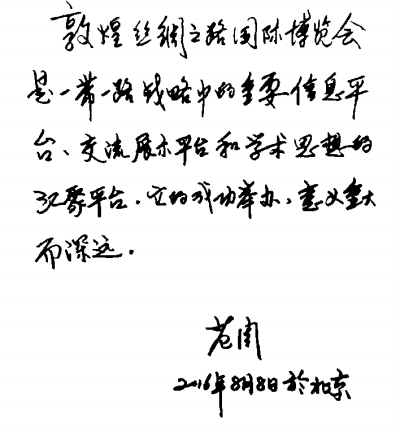 敦煌丝绸之路国际博览会
是一带一路战略中的重要信息平
台、交流展示平台和学术思想的
汇聚平台.它的成功举办,意义重大
而深远.
范周
2016年8月8日於北京